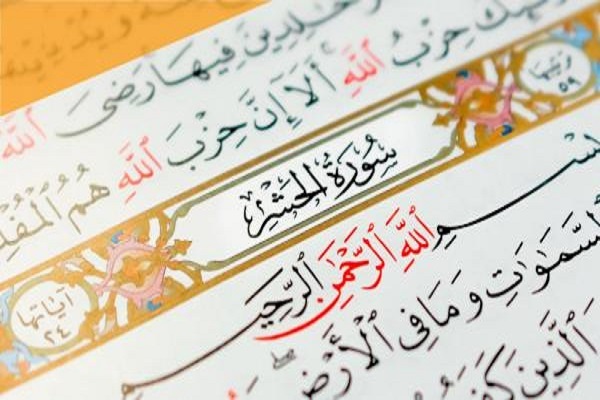 خَٰلِدِينَ فِيهَا رَضِىَ ٱللَّهُ
حِزْبُ ٱللَّهِ أَلَآ إِنَّ حِزْبَ ٱللَّهِ هُمُ
ترتيبها ٥٩ سُورَةُ الحَشْرِ آياتها ٢٤
بِسْمِ ٱللَّهِ ٱلرَّحْمَٰنِ ٱلرَّحِيمِ
ٱلسَّمَٰوَٰتِ وَمَا فِى ٱلْأَرْضِ
ٱلَّذِينَ كَفَرُوا۟